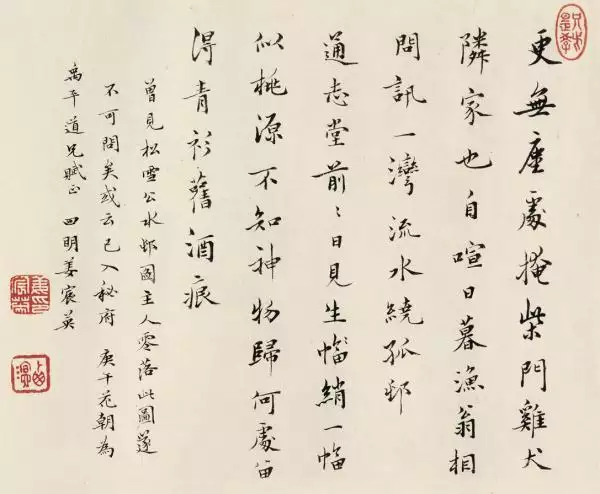 更無塵處掩柴門雞犬
隣家也自喧日暮漁翁相
問訊一灣流水繞孤邨
通志堂前〻日見生幅綃一幅
似桃源不知神物歸何處留
得青衫舊酒痕
曾見松雪公水邨圖主人零落此圖遂
不可問矣或云已入秘府 庚午花朝為
禹平道兄賦正 四明姜宸英
西溟